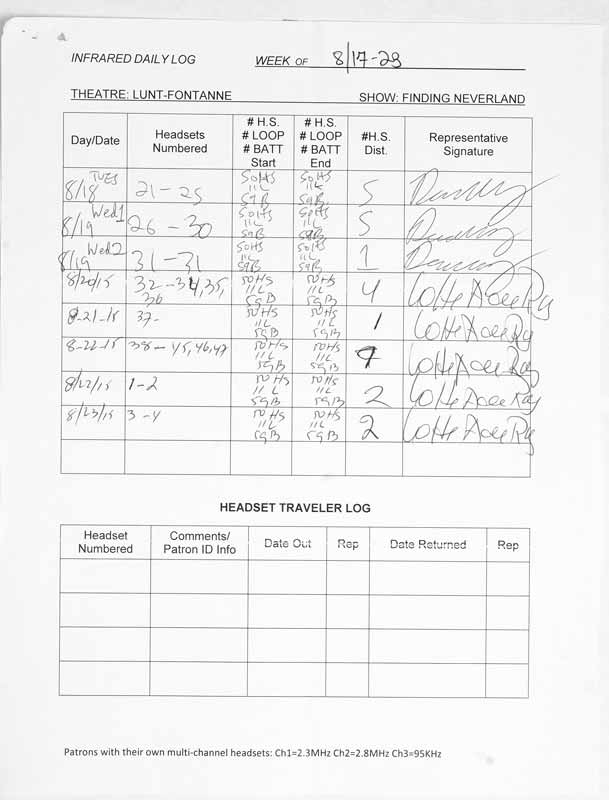 INFRARED DAILY LOG WEEK OF 8/17-23
THEATRE: LUNT-FONTANNE SHOW: FINDING NEVERLAND
Day/Date Headsets Numbered # H.S. # LOOP # BATT Start # H.S. # LOOP # BATT End #H.S. Dist. Representative Signature
TUES 8/18 21-25 50HS 11L 59B 50HS 11L 59B 5
Wed1 8/19 26-30 50HS 11L 59B 50HS 11L 59B 5
Wed2 8/19 31-31 50HS 11L 59B 50HS 11L 59B 1
8/20/15 32-34,35, 36 50HS 11L 59B 50HS 11L 59B 4
8-21-15 37- 50HS 11L 59B 50HS 11L 59B 1
8-22-15 38-45,46,47 50HS 11L 59B 50HS 11L 59B
8/22/15 1-2 50HS 11L 59B 50HS 11L 59B 2
8/23/15 3-4 50HS 11L 59B 50HS 11L 59B 2
HEADSET TRAVELER LOG
Headset Numbered Comments/ Patron ID Info Date Out Rep Date Returned Rep
Patrons with their own multi-channel headsets: Ch1=2.3MHz Ch2=2.8MHz Ch3=95KHz